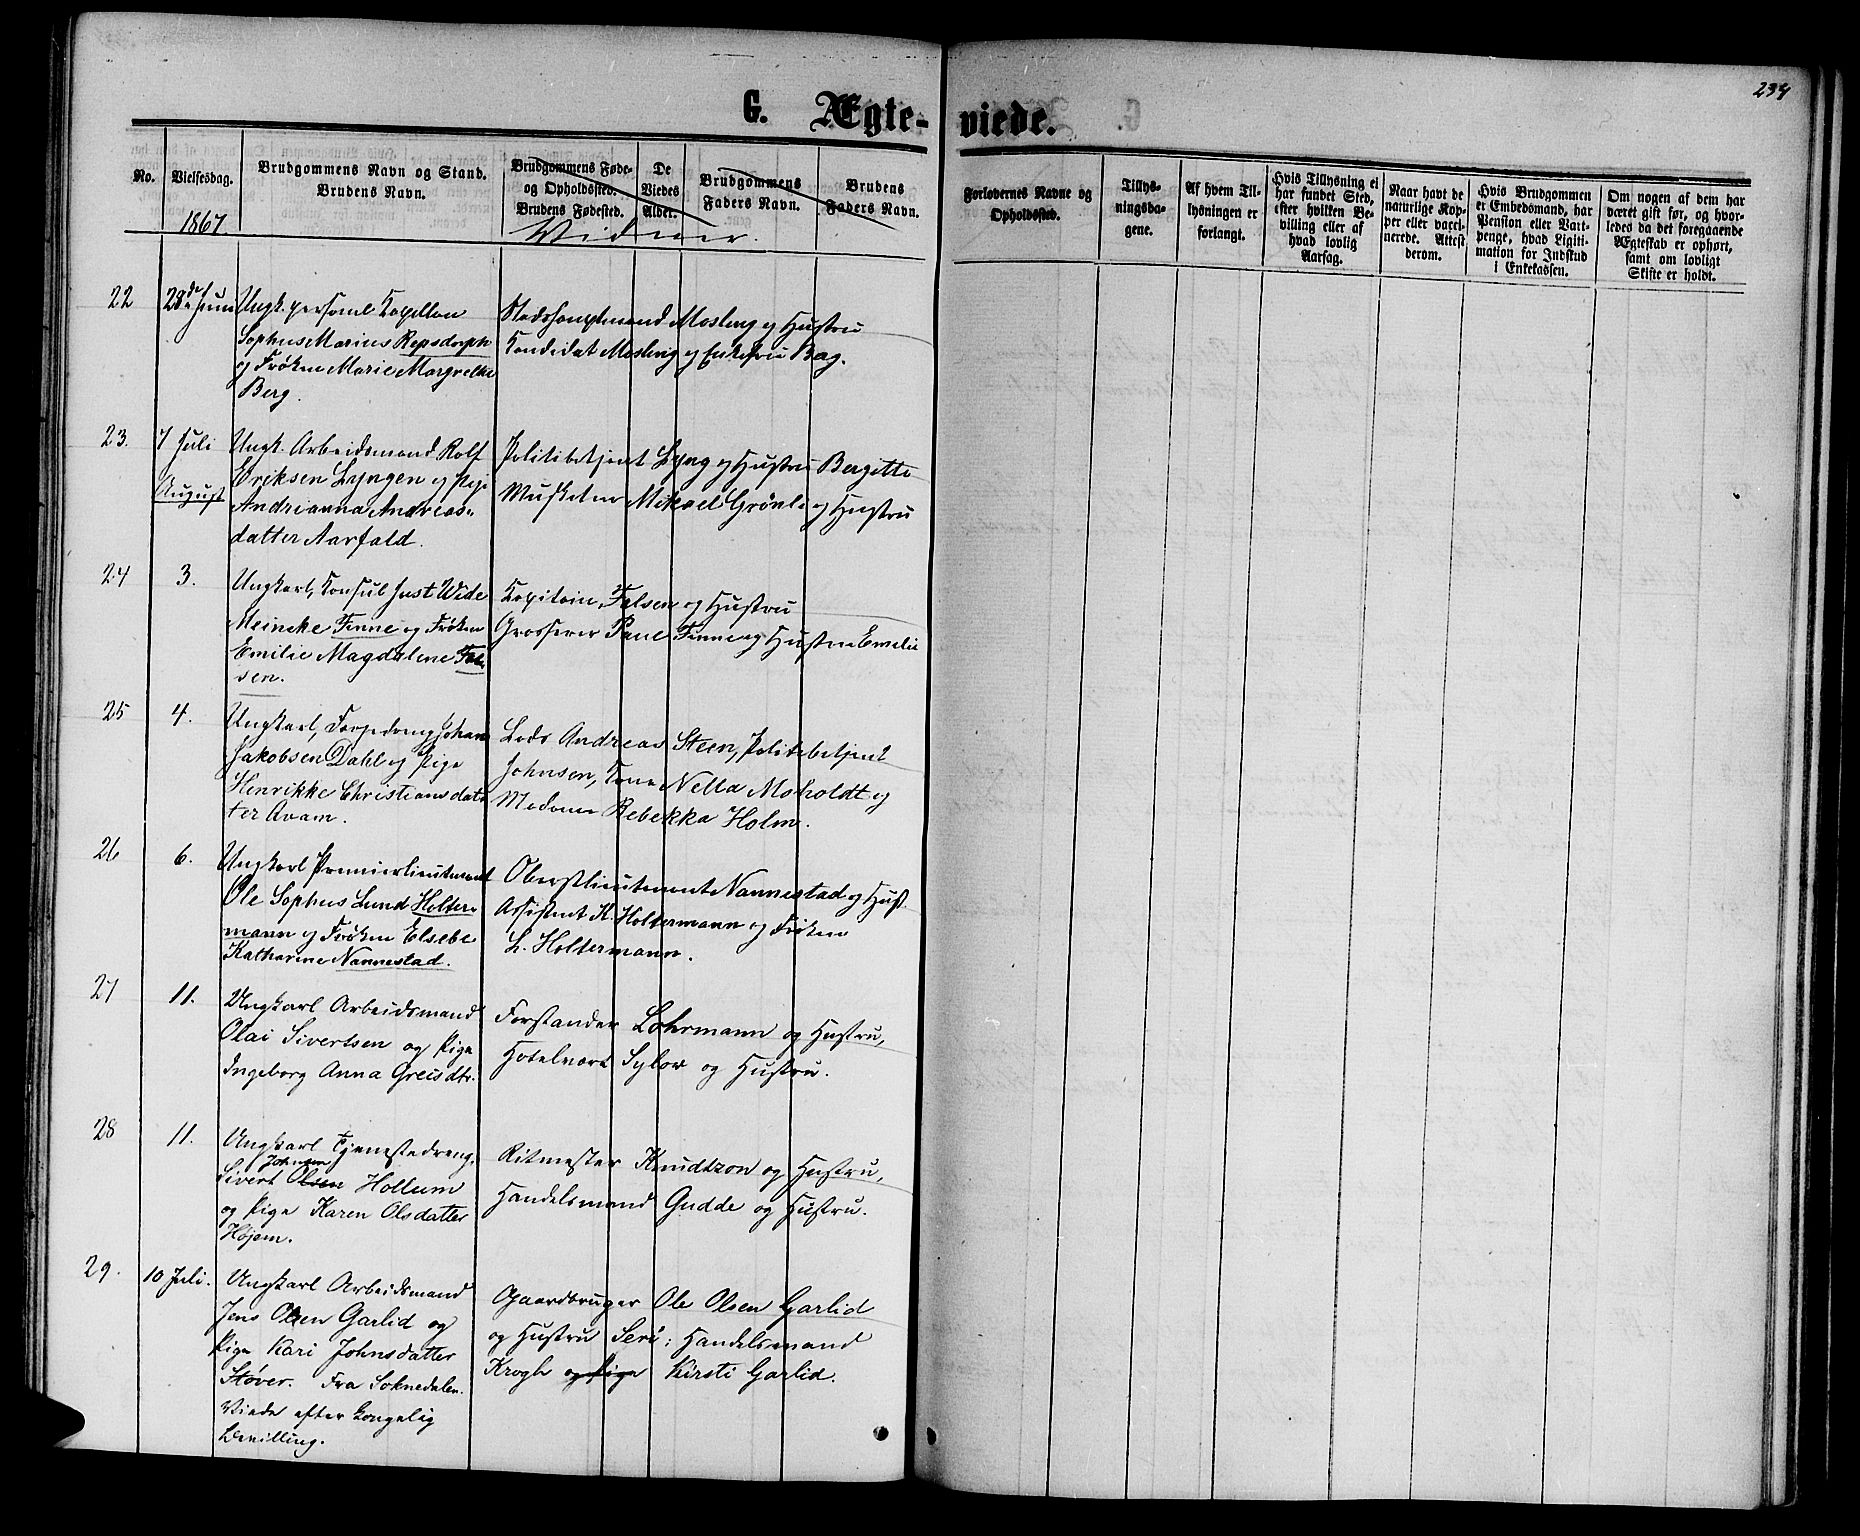 234
G. Ægte-
viede.
No.
Vielsesdag.
Brudgommens Navn og Stand.
Brudens Navn.
Brudgommens Føde-
og Opholdssted.
Brudens Fødested.
De
Viedes
Alder.
Brudgommens
Faders Navn.
Brudens
Faders Navn.
Forlovernes Navne og
Opholdssted.
Tillys-
ningsda-
gene.
Af hvem Til-
lysningen er
forlangt.
Hvis Tillysning ei
har fundet Sted,
efter hvilken Be-
villing eller af
hvad lovlig
Aarsag.
Naar havt de
naturlige Kop-
per eller vacci-
nerede. Attest
derom.
Hvis Brudgommen
er Embedsmand, har
Pension eller Vart-
penge, hvad Ligiti-
mation for Indskud
i Enkekassen.
Om nogen af dem har
været gift før, og hvor-
ledes da det foregaaende
Ægteskab er ophørt,
samt om lovligt
Skifte er holdt.
1867
Vidner.
22
28de Juni
Ungk. personel Kapellan
Sophus Marius Repsdorph
og Frøken Marie Margrethe
Berg.
Stadshauptmand Mosling og Hustru
Kandidat Mosling og Enkefru Berg.
23.
7 Juli
August
Ungk. Arbeidsmand Rolf
Eriksen Lyngen og Pige
Andrianna Andreas-
datter Aarfald.
Politibetjent Lyng og Hustru Bergitte
Musketeer Mikael Grönli og Hustru
24
3.
Ungkarl, Konsul Just Wide
Meincke Finne og Frøken
Emilie Magdalene Fal-
sen.
Kapitain Falsen og Hustru
Grosserer Paul Finne og Hustru Emelie
25
4.
Ungkarl, Johan
Jakobsen Dahl og Pige
Henrikke Christiansdat-
ter Avam.
Lods Andreas Steen, Politibetjent
Johnsen, Kone Nella Moholdt og
Madame Rebekka Holm.
26
6.
Ungkarl Premierlieutenant
Ole Sophus Lund Holter-
mann og Frøken Elsebe
Katharine Nannestad.
Oberstlieutenant Nannestad og Hust.
Assistent K. Holtermann og Frøken
L. Holtermann.
27
11.
Ungkarl Arbeidsmand
Olai Sivertsen og Pige
Ingeborg Anna Greisdtr.
Forstander Lohrmann og Hustru,
Hotelvært Sylow og Hustru.
28
11.
Ungkarl Tjenestedreng
Johnsen
Sivert Olsen Hollum
og Pige Karen Olsdatter
Højem.
Ritmester Knudtzon og Hustru,
Handelsmand Gudde og Hustru.
29.
10 Juli.
Ungkarl Arbeidsmand
Jens Olsen Garlid og
Pige Kari Johnsdatter
Støver. Fra Soknedalen.
Viede efter kongelig
Bevilling.
Gaardbruger Ole Olsen Garlid
og Hustru Seri; Handelsmand
Krogh og Pige Kirsti Garlid.